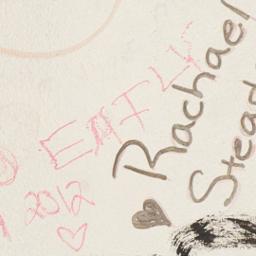 EMILY
2012
Rachael
Stead